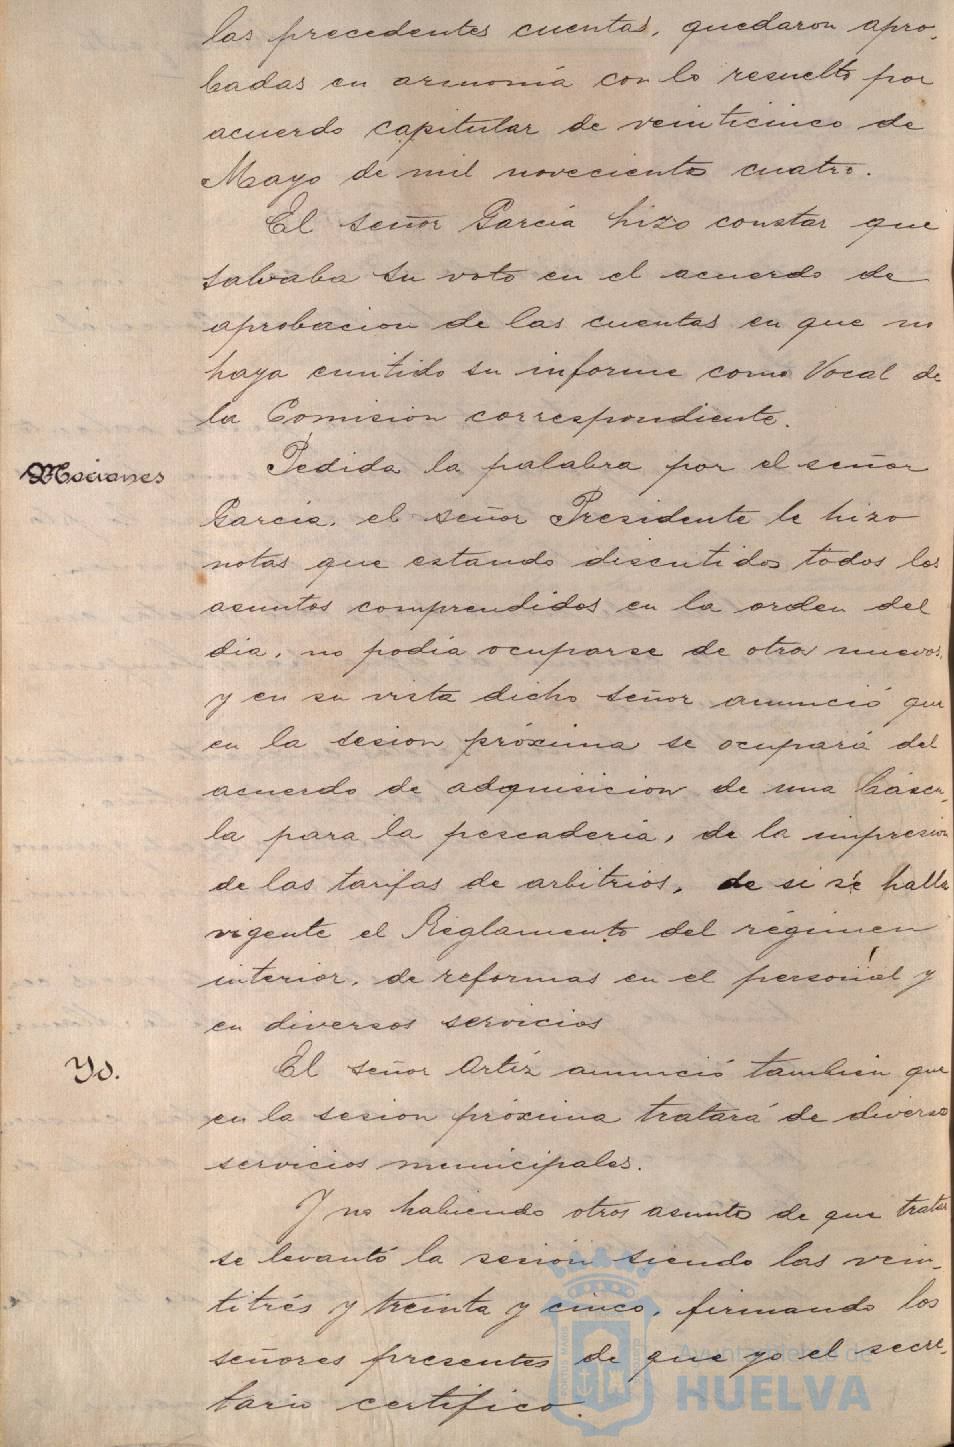 las precedentes cuentas, quedaron apro-
badas en armonía con lo resuelto por
acuerdo capitular de veinticinco de
Mayo de mil novecientos cuatro.
El señor García hizo constar que
salvaba su voto en el acuerdo de
aprobacion de las cuentas en que no
haya emitido su informe como Vocal de
la Comision correspondiente.
Mociones
Pedida la palabra por el señor
García, el señor Presidente le hizo
notar que estando discutidos todos los
asuntos comprendidos en la orden del
dia, no podia ocuparse de otros nuevos,
y en su vista dicho señor anunció que
en la sesion próxima se ocupará del
acuerdo de adquisicion de una báscu-
la para la pescaderia, de la impresion
de las tarifas de arbitrios, de si se halla
vigente el Reglamento del régimen
interior, de reformas en el personal y
en diversos servicios
Yd.
El señor Ortíz anunció tambien que
en la sesion próxima tratará de diversos
servicios municipales.
Y no habiendo otros asuntos de que tratar
se levantó la sesión siendo las vein-
titrés y treinta y cinco, firmando los
señores presentes de que yo el secre-
tario certifico.
Ayuntamiento de
HUELVA